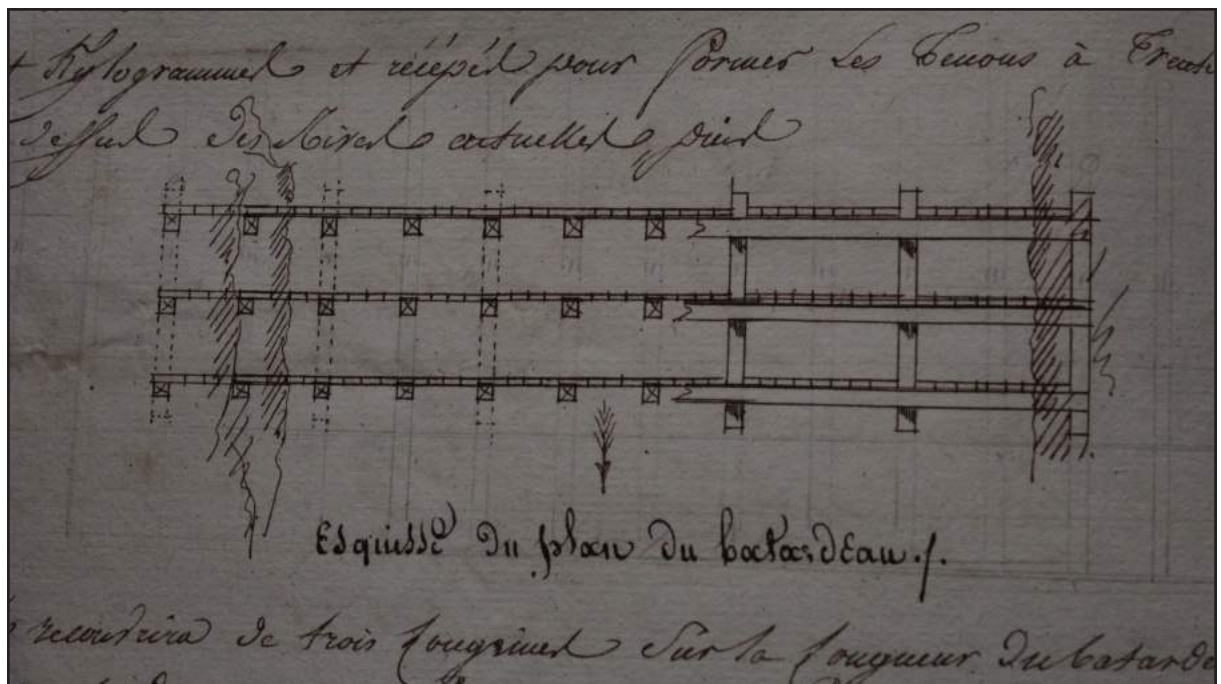 Kylogrammes et récépés pour former les tenons à Trente
dessus des Rives actuelles, puis
Esquisse du plan du batardeau ./.
recouvrira de trois longrines sur la longueur du batarde